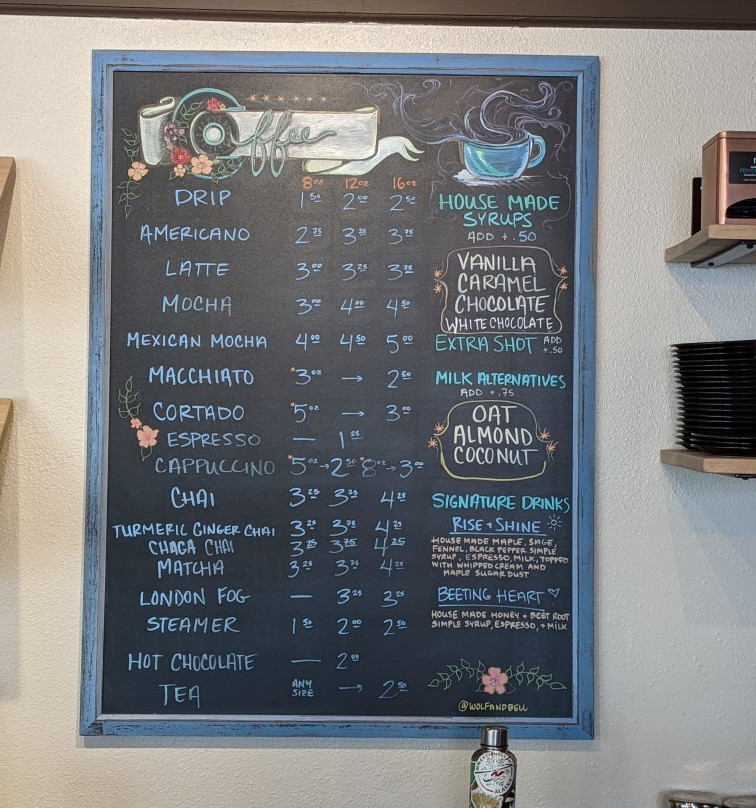 Coffee
8oz 12oz 16oz
DRIP 1 50 2 00 2 50
AMERICANO 2 75 3 25 3 75
LATTE 3 00 3 25 3 75
MOCHA 3 00 4 00 4 50
MEXICAN MOCHA 4 00 4 50 5 00
MACCHIATO *3 oz → 2 50
CORTADO *5 oz → 3 00
ESPRESSO — 1 25
CAPPUCCINO *5 oz → 2 50 *8 oz → 3 00
CHAI 3 25 3 75 4 25
TURMERIC GINGER CHAI 3 25 3 75 4 25
CHAGA CHAI 3 25 3 75 4 25
MATCHA 3 25 3 75 4 25
LONDON FOG — 3 25 3 75
STEAMER 1 50 2 00 2 50
HOT CHOCOLATE — 2 00
TEA ANY SIZE → 2 50
HOUSE MADE
SYRUPS
ADD + .50
VANILLA
CARAMEL
CHOCOLATE
WHITE CHOCOLATE
EXTRA SHOT ADD + .50
MILK ALTERNATIVES
ADD + .75
OAT
ALMOND
COCONUT
SIGNATURE DRINKS
RISE + SHINE
HOUSE MADE MAPLE, SAGE,
FENNEL, BLACK PEPPER SIMPLE
SYRUP, ESPRESSO, MILK, TOPPED
WITH WHIPPED CREAM AND
MAPLE SUGAR DUST
BEETING HEART
HOUSE MADE HONEY + BEET ROOT
SIMPLE SYRUP, ESPRESSO, + MILK
@WOLFANDBELL